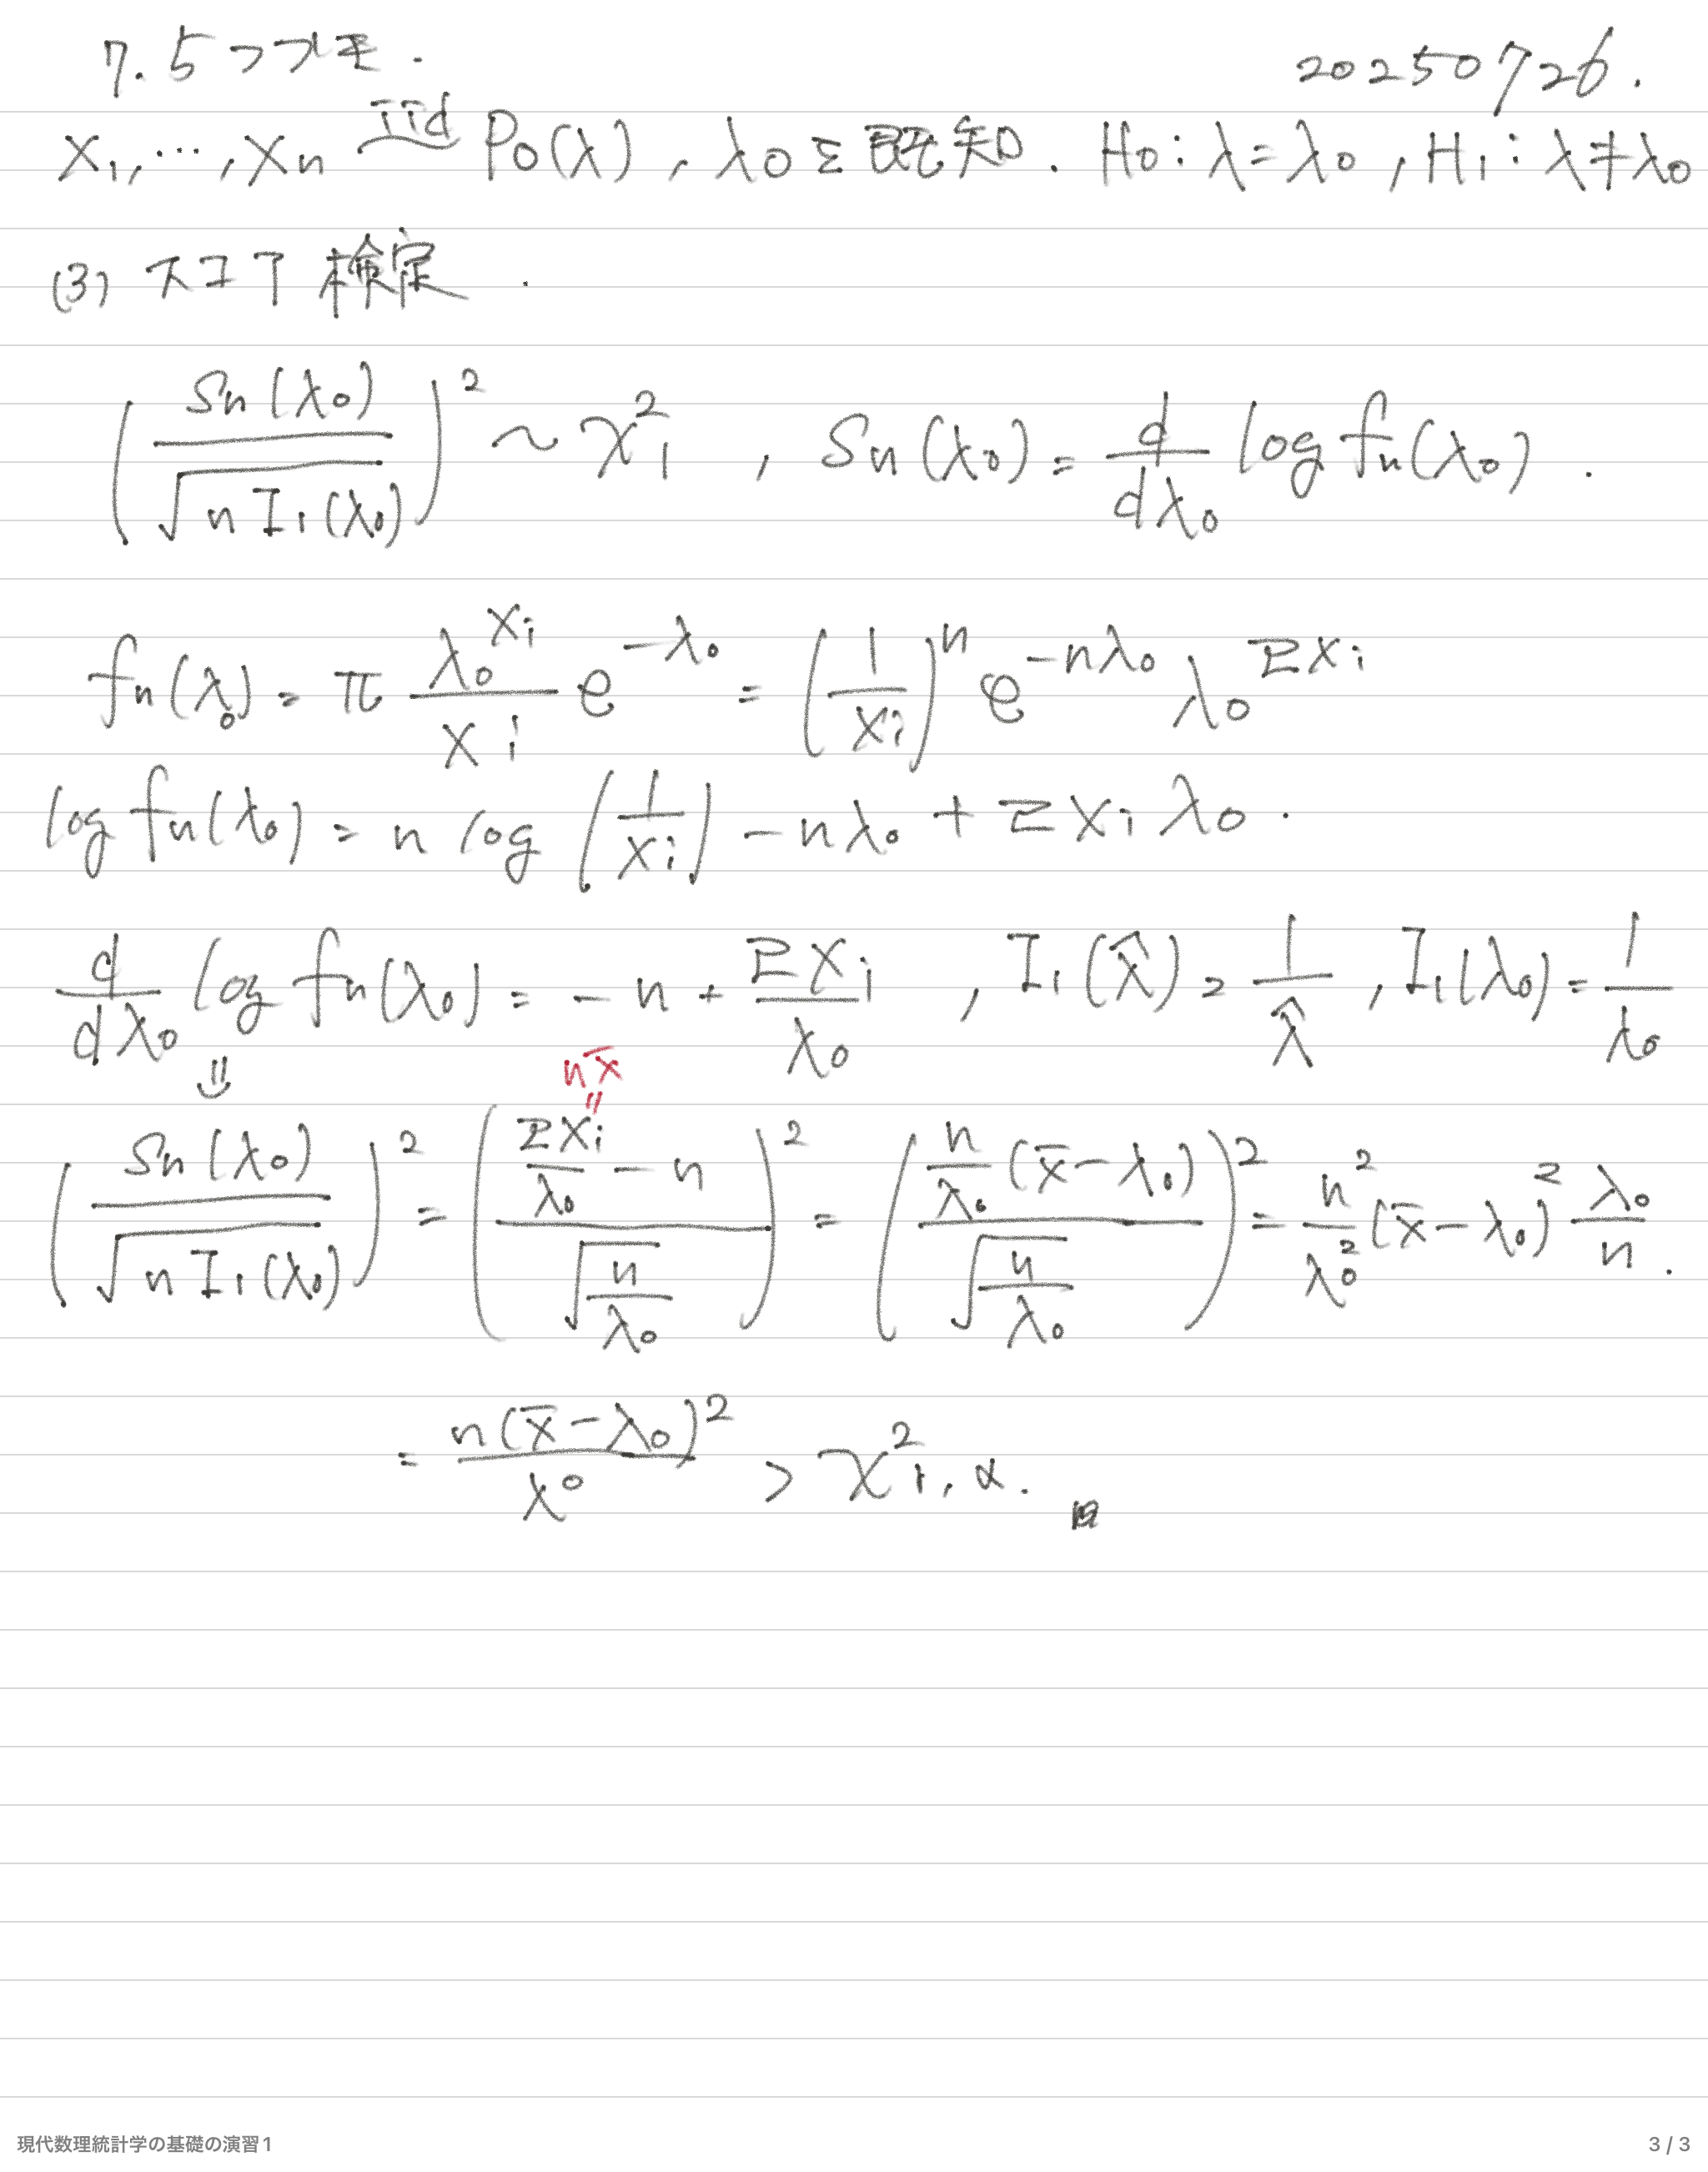 7.5つづき. 20250726.
X1,…,Xn iid~ Po(λ), λ0を既知. H0:λ=λ0, H1:λ≠λ0
(3) スコア検定.
(Sn(λ0)/√(nI1(λ0)))^2 ~ χ^2_1, Sn(λ0)= d/dλ0 log fn(λ0).
fn(λ0)= π λ0^Xi/Xi e^-λ0 = (1/Xi)^n e^-nλ0 λ0^ΣXi
log fn(λ0) = n log (1/Xi) - nλ0 + ΣXi λ0.
d/dλ0 log fn(λ0) = -n + ΣXi/λ0, I1(λ̂)= 1/λ̂, I1(λ0)= 1/λ0
⇓ nX̄
(Sn(λ0)/√(nI1(λ0)))^2 = ((ΣXi/λ0 - n)/√(n/λ0))^2 = ((n/λ0 (x̄-λ0))/√(n/λ0))^2 = n^2/λ0^2 (x̄-λ0)^2 λ0/n.
= n(x̄-λ0)^2/λ0 > χ^2_1,α.
現代数理統計学の基礎の演習1 3 / 3